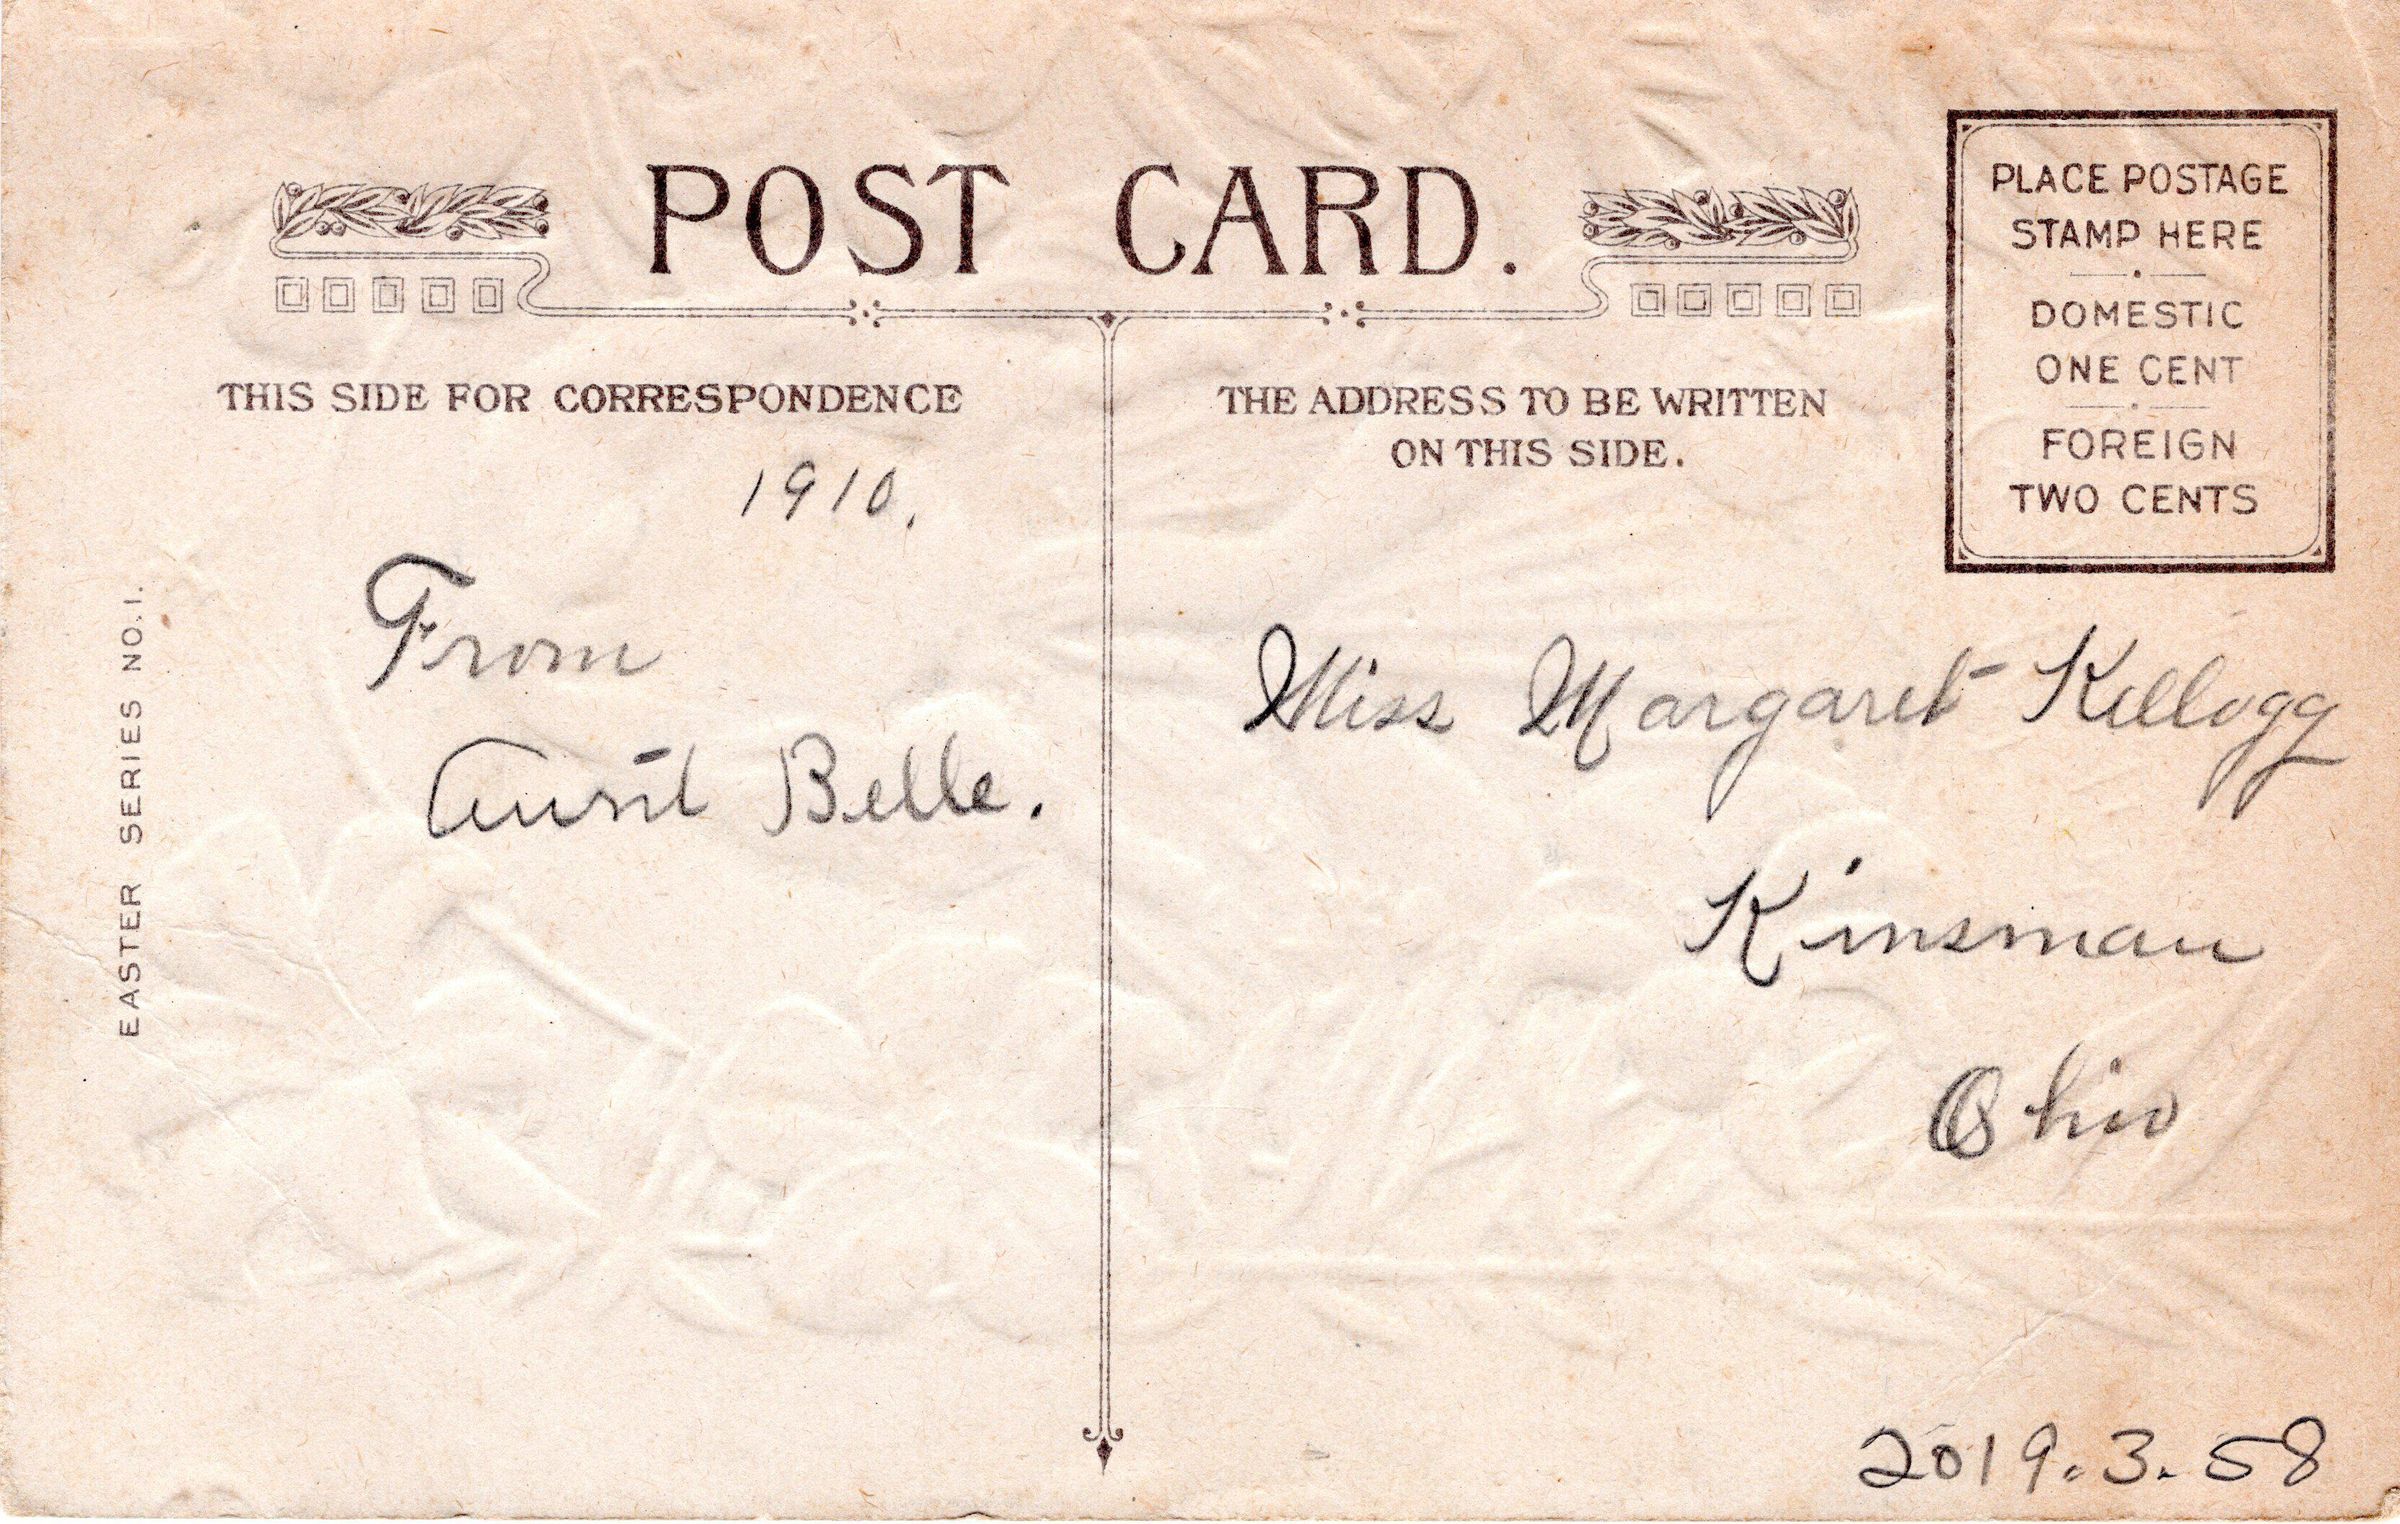 POST CARD.
PLACE POSTAGE
STAMP HERE
DOMESTIC
ONE CENT
FOREIGN
TWO CENTS
THIS SIDE FOR CORRESPONDENCE
1910.
From
Aunt Belle.
EASTER SERIES NO. 1.
THE ADDRESS TO BE WRITTEN
ON THIS SIDE.
Miss Margaret Kellogg
Kinsman
Ohio
2019.3.58